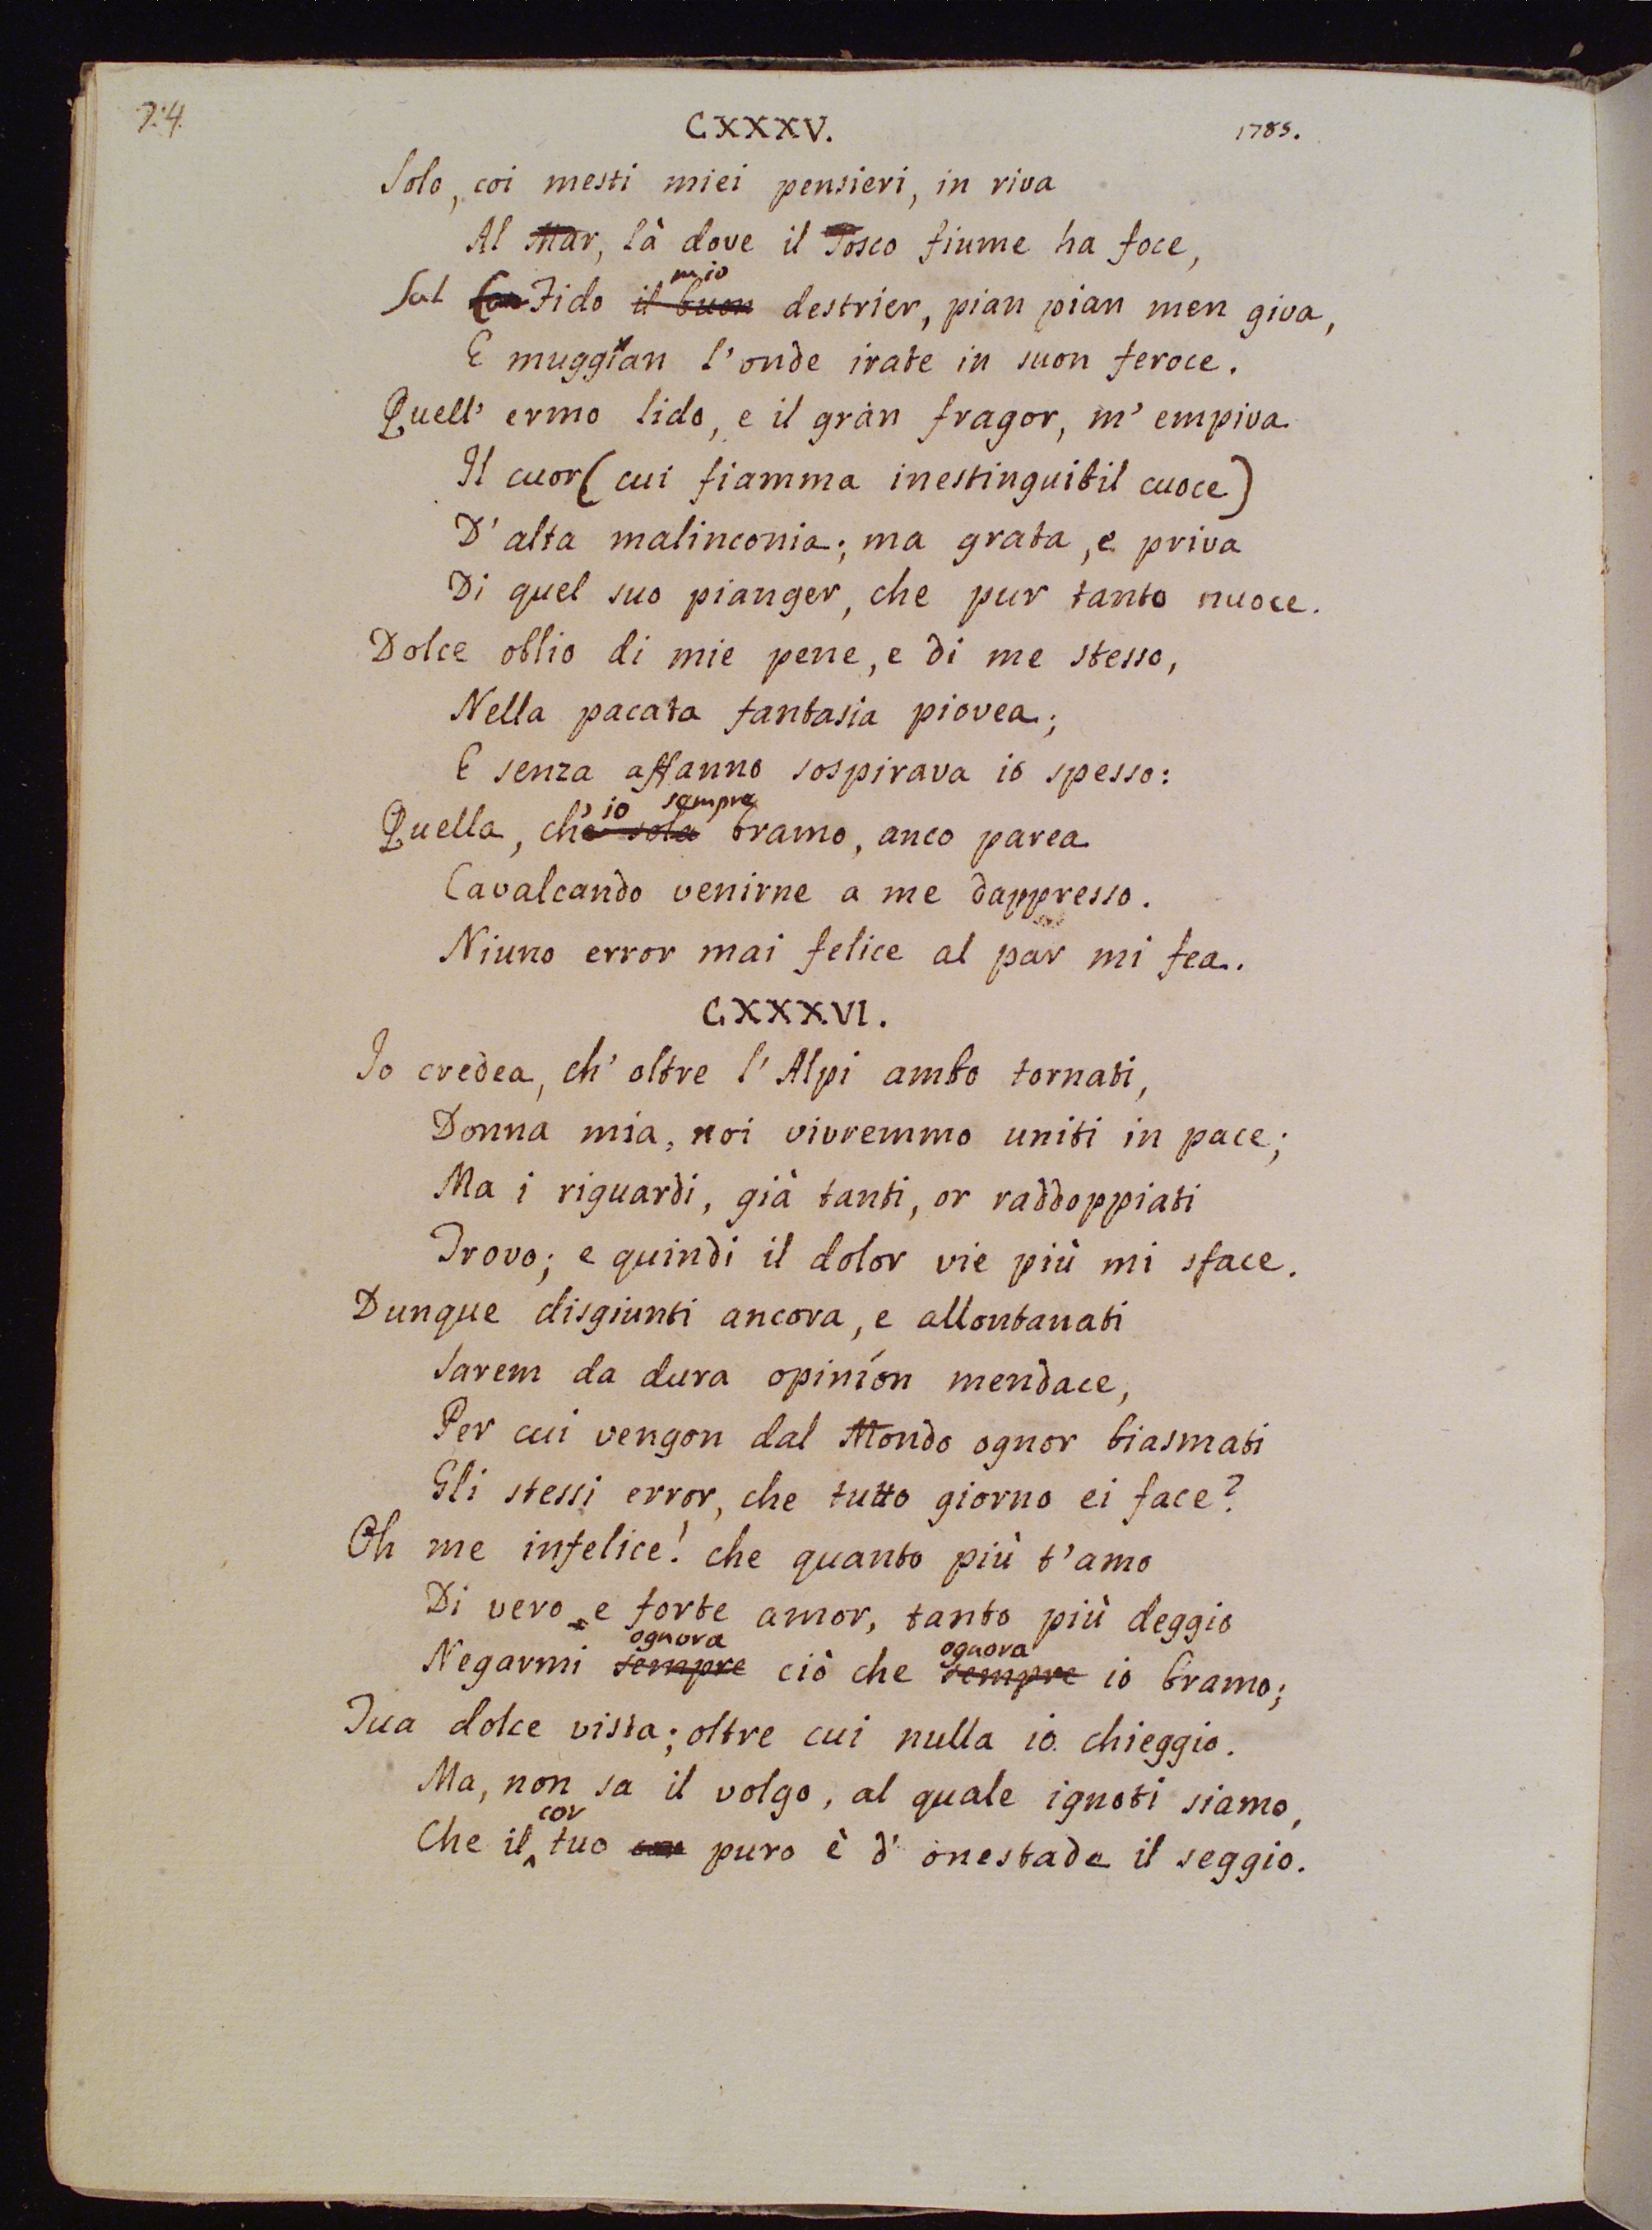 74.
CXXXV. 1785.
Solo, coi mesti miei pensieri, in riva
Al Mar, là dove il Tosco fiume ha foce,
Sul Fido il buon mio destrier, pian pian men giva,
E muggian l'onde irate in suon feroce.
Quell' ermo lido, e il gran fragor, m' empiva
Il cuor (cui fiamma inestinguibil cuoce)
D' alta malinconia; ma grata, e priva
Di quel suo pianger, che pur tanto nuoce.
Dolce oblio di mie pene, e di me stesso,
Nella pacata fantasia piovea;
E senza affanno sospirava io spesso:
Quella, ch' io sempre sola bramo, anco parea
Cavalcando venirne a me dappresso.
Niuno error mai felice al par mi fea.
CXXXVI.
Io credea, ch' oltre l' Alpi ambo tornati,
Donna mia, noi vivremmo uniti in pace;
Ma i riguardi, già tanti, or raddoppiati
Trovo; e quindi il dolor vie più mi sface.
Dunque disgiunti ancora, e allontanati
Sarem da dura opinion mendace,
Per cui vengon dal Mondo ognor biasmati
Gli stessi error, che tutto giorno ei face?
Oh me infelice! che quanto più t'amo
Di vero e forte amor, tanto più deggio
Negarmi sempre ognora ciò che sempre ognora io bramo;
Tua dolce vista; oltre cui nulla io chieggio.
Ma, non sa il volgo, al quale ignoti siamo,
Che il cor tuo puro è d' onestade il seggio.